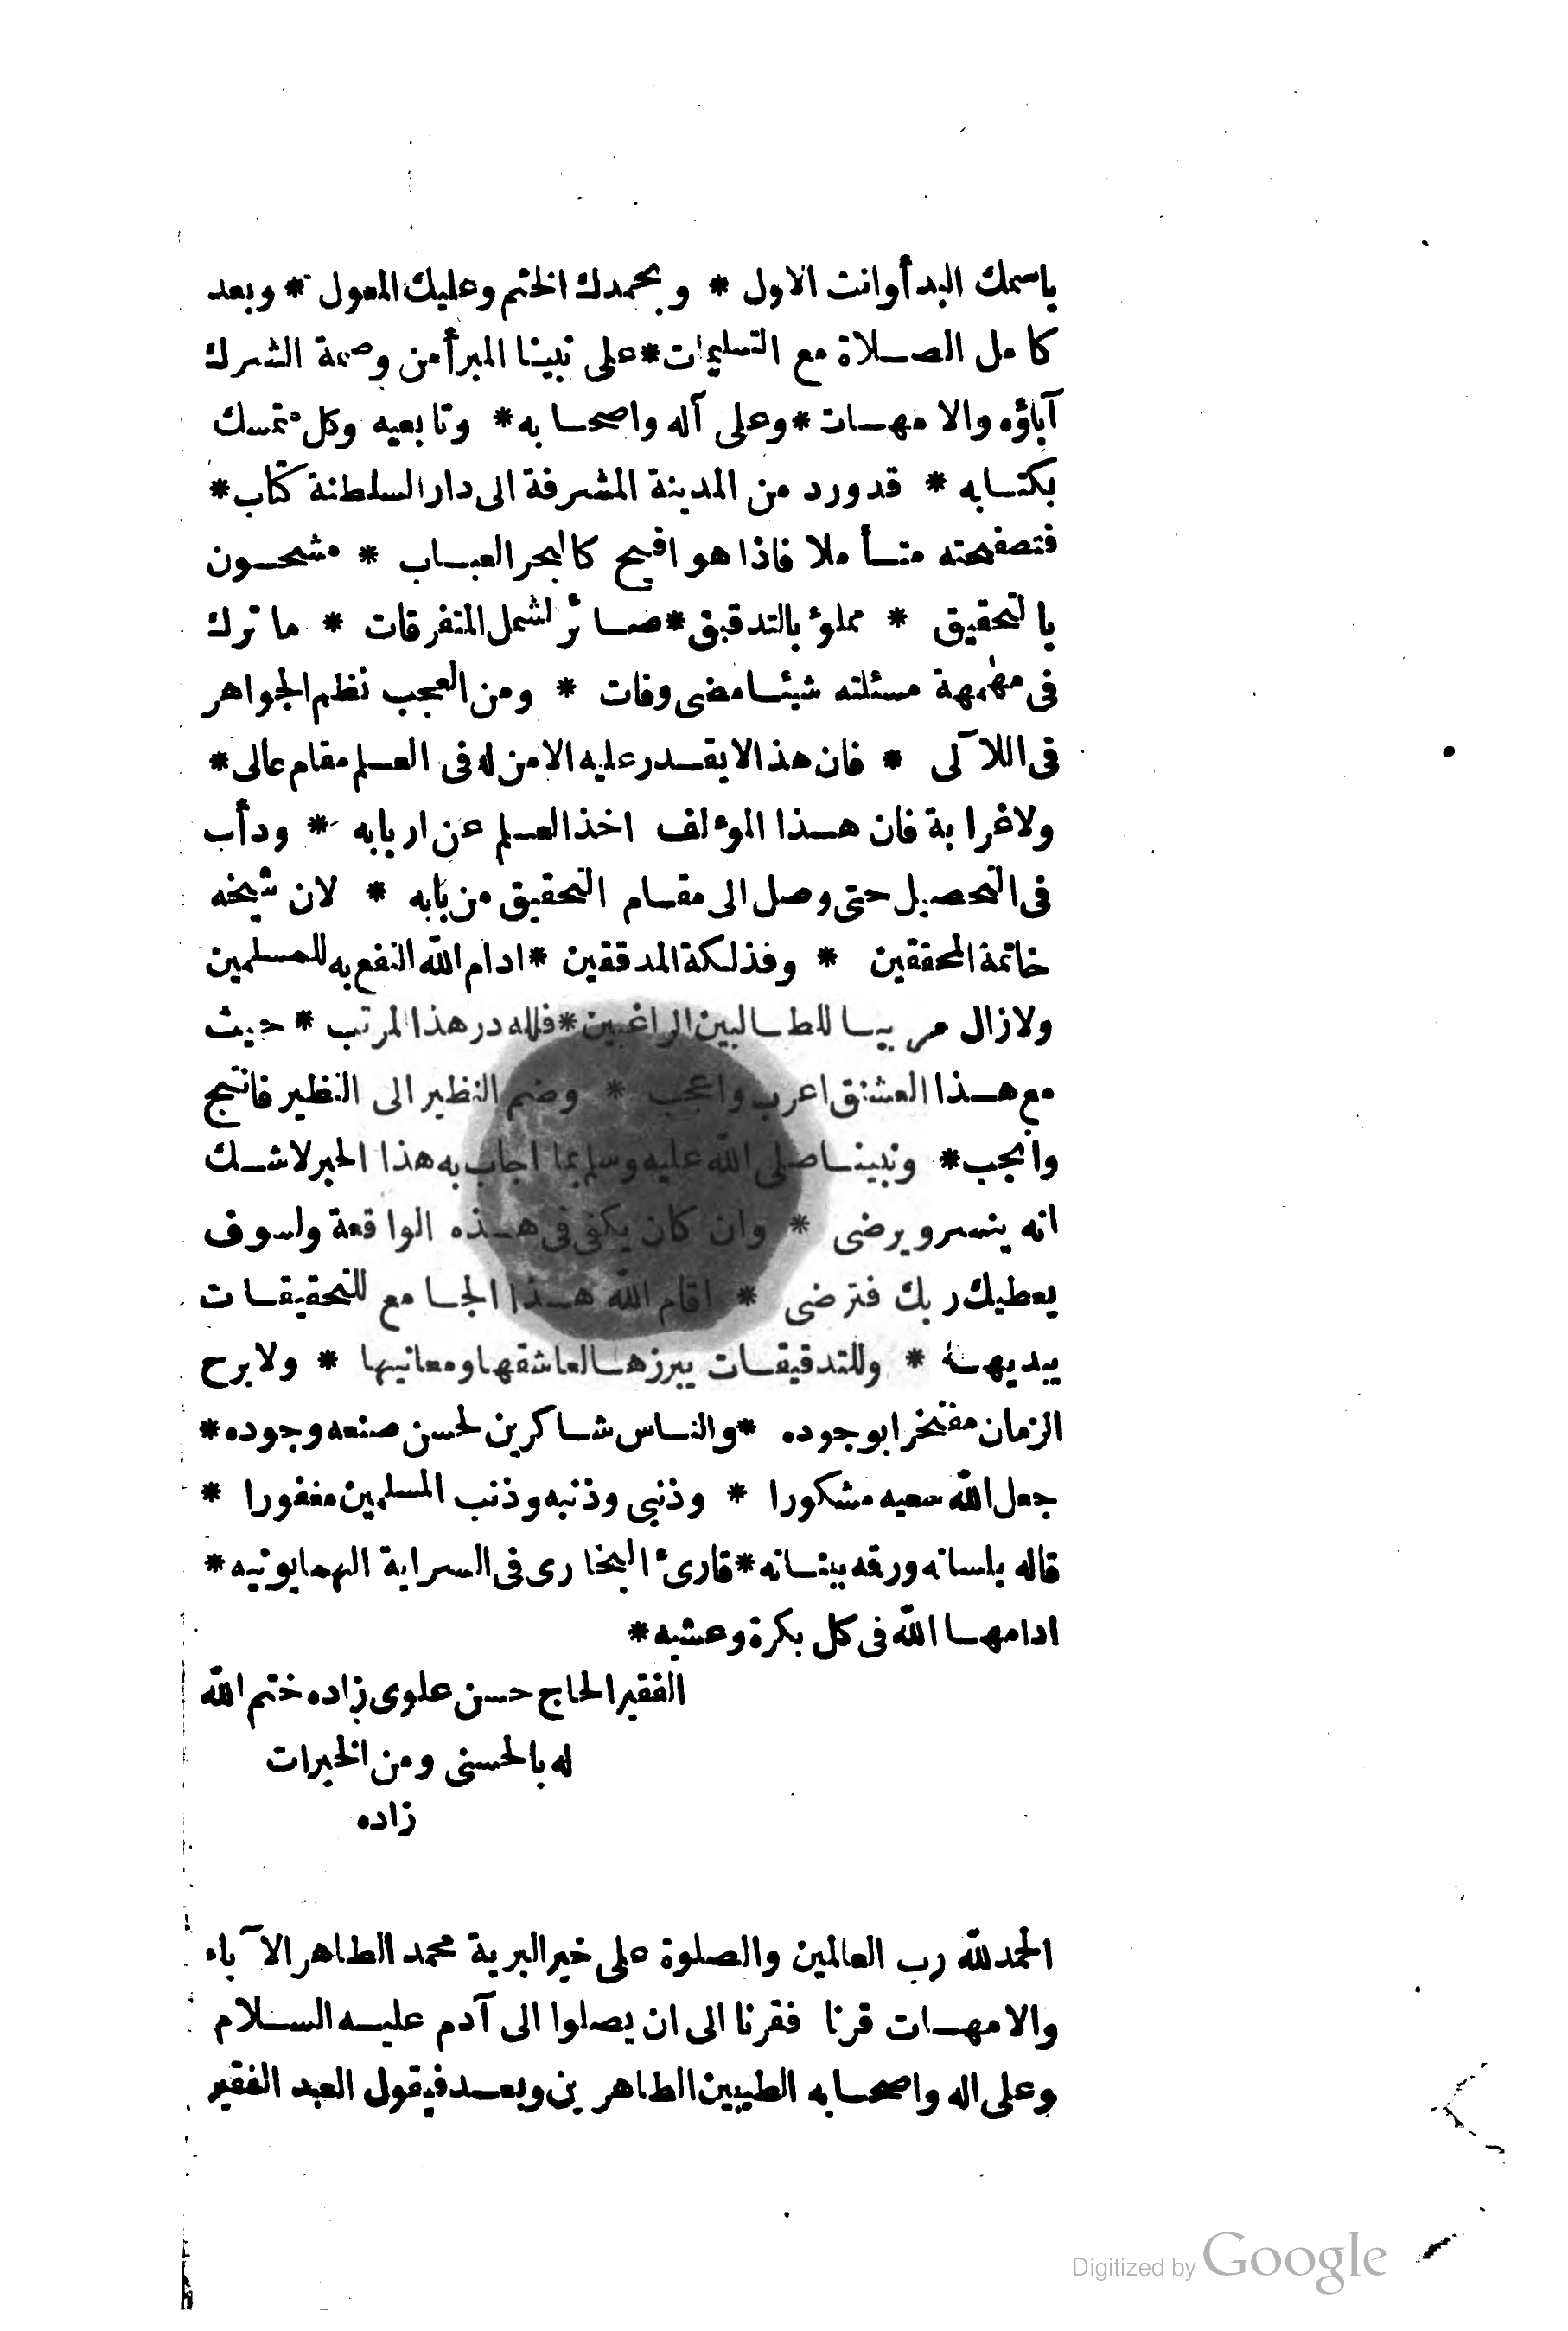 باسمك البدأ وانت الاول * وبحمدك الختم وعليك المعول * وبعد
كامل الصلاة مع التسليمات * على نبينا المبرأ من وصمة الشرك
آباؤه والامهات * وعلى آله واصحابه * وتابعيه وكل متمسك
بكتابه * قد ورد من المدينة المشرفة الى دار السلطنة كتاب *
فتصفحته متأملا فاذا هو افيح كالبحر العباب * مشحون
بالتحقيق * مملوء بالتدقيق * صائر لشمل المتفرقات * ما ترك
فى مهمهة مسئلته شيئا مضى وفات * ومن العجب نظم الجواهر
فى اللآلى * فان هذا لا يقدر عليه الا من له فى العلم مقام عالى *
ولا غرابة فان هذا المؤلف اخذ العلم عن اربابه * ودأب
فى التحصيل حتى وصل الى مقام التحقيق من بابه * لان شيخه
خاتمة المحققين * وفذلكة المدققين * ادام الله النفع به للمسلمين
ولازال مربيا للطالبين الراغبين * فلله در هذا المرتب * حيث
مع هذا العشنق اعرب واعجب * وضم النظير الى النظير فانتج
وانجب * ونبينا صلى الله عليه وسلم بما اجاب به هذا الحبر لاشك
انه ينسر ويرضى * وان كان يكفى فى هذه الواقعة ولسوف
يعطيك ربك فترضى * اقام الله هذا الجامع للتحقيقات
يبديها * وللتدقيقات يبرزها لعاشقها ومعانيها * ولا برح
الزمان مفتخرا بوجوده * والناس شاكرين لحسن صنعه وجوده *
جعل الله سعيه مشكورا * وذنبى وذنبه وذنب المسلمين مغفورا *
قاله بلسانه ورقه ببنانه * قارئ البخارى فى السراية الهمايونيه *
ادامها الله فى كل بكرة وعشيه *
الفقير الحاج حسن علوى زاده ختم الله
له بالحسنى ومن الخيرات
زاده
الحمد لله رب العالمين والصلوة على خير البرية محمد الطاهر الآباء
والامهات قرنا فقرنا الى ان يصلوا الى آدم عليه السلام
وعلى اله واصحابه الطيبين الطاهرين وبعد فيقول العبد الفقير
Digitized by Google